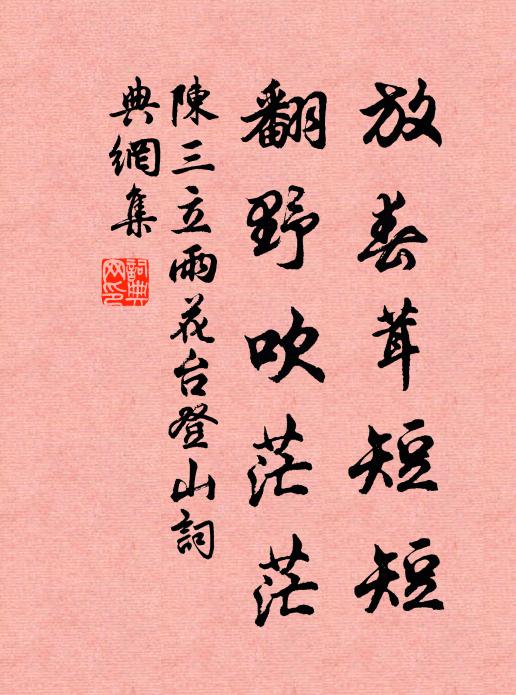 放春茸短短
翻野吹茫茫
陳三立雨花台登山詞
典網集
詞典
网印